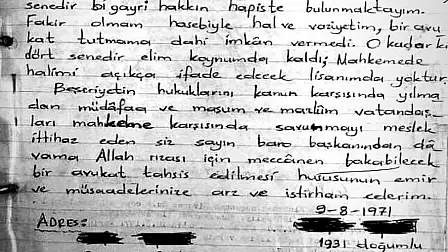 senedir bigayri hakkın hapiste bulunmaktayım.
Fakir olmam hasebiyle hal ve vaziyetim, bir avu
kat tutmama dahi imkân vermedi. O kadar ki
dört senedir elim koynumda kaldı; Mahkemede
halimi açıkça ifade edecek lisanım da yoktur.
Beşeriyetin hukuklarını kanun karşısında yılma
dan müdafaa ve masum ve mazlûm vatandaş-
ları mahkeme karşısında savunmayı meslek
ittihaz eden siz sayın baro başkanından dâ
vama Allah rızası için meccânen bakabilecek
bir avukat tahsis edilmesi hususunun emir
ve müsaadelerinize arz ve istirham ederim.
9-8-1971
ADRES:
1931 doğumlu